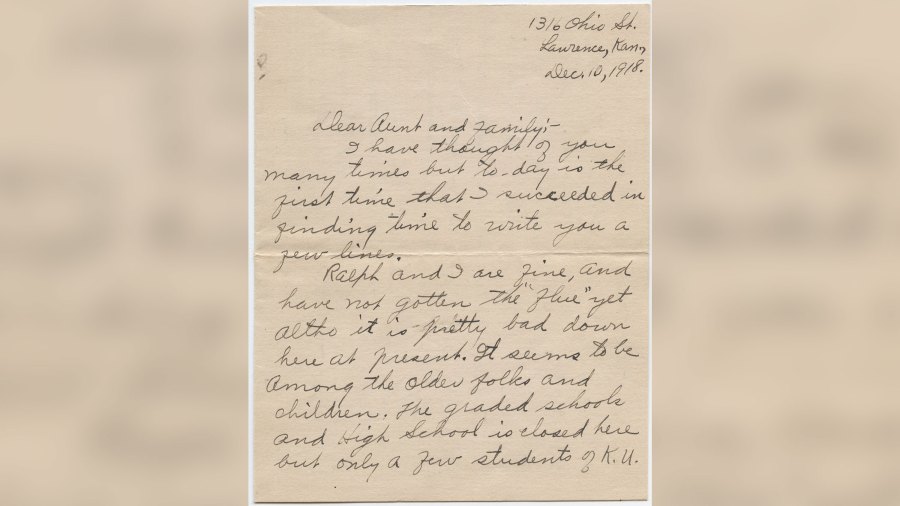 1316 Ohio St.
Lawrence, Kan.,
Dec. 10, 1918.
Dear Aunt and family;-
I have thought of you
many times but to-day is the
first time that I succeeded in
finding time to write you a
few lines.
Ralph and I are fine, and
have not gotten the "flue" yet
altho it is pretty bad down
here at present. It seems to be
among the older folks and
children. The graded schools
and High School is closed here
but only a few students of K.U.